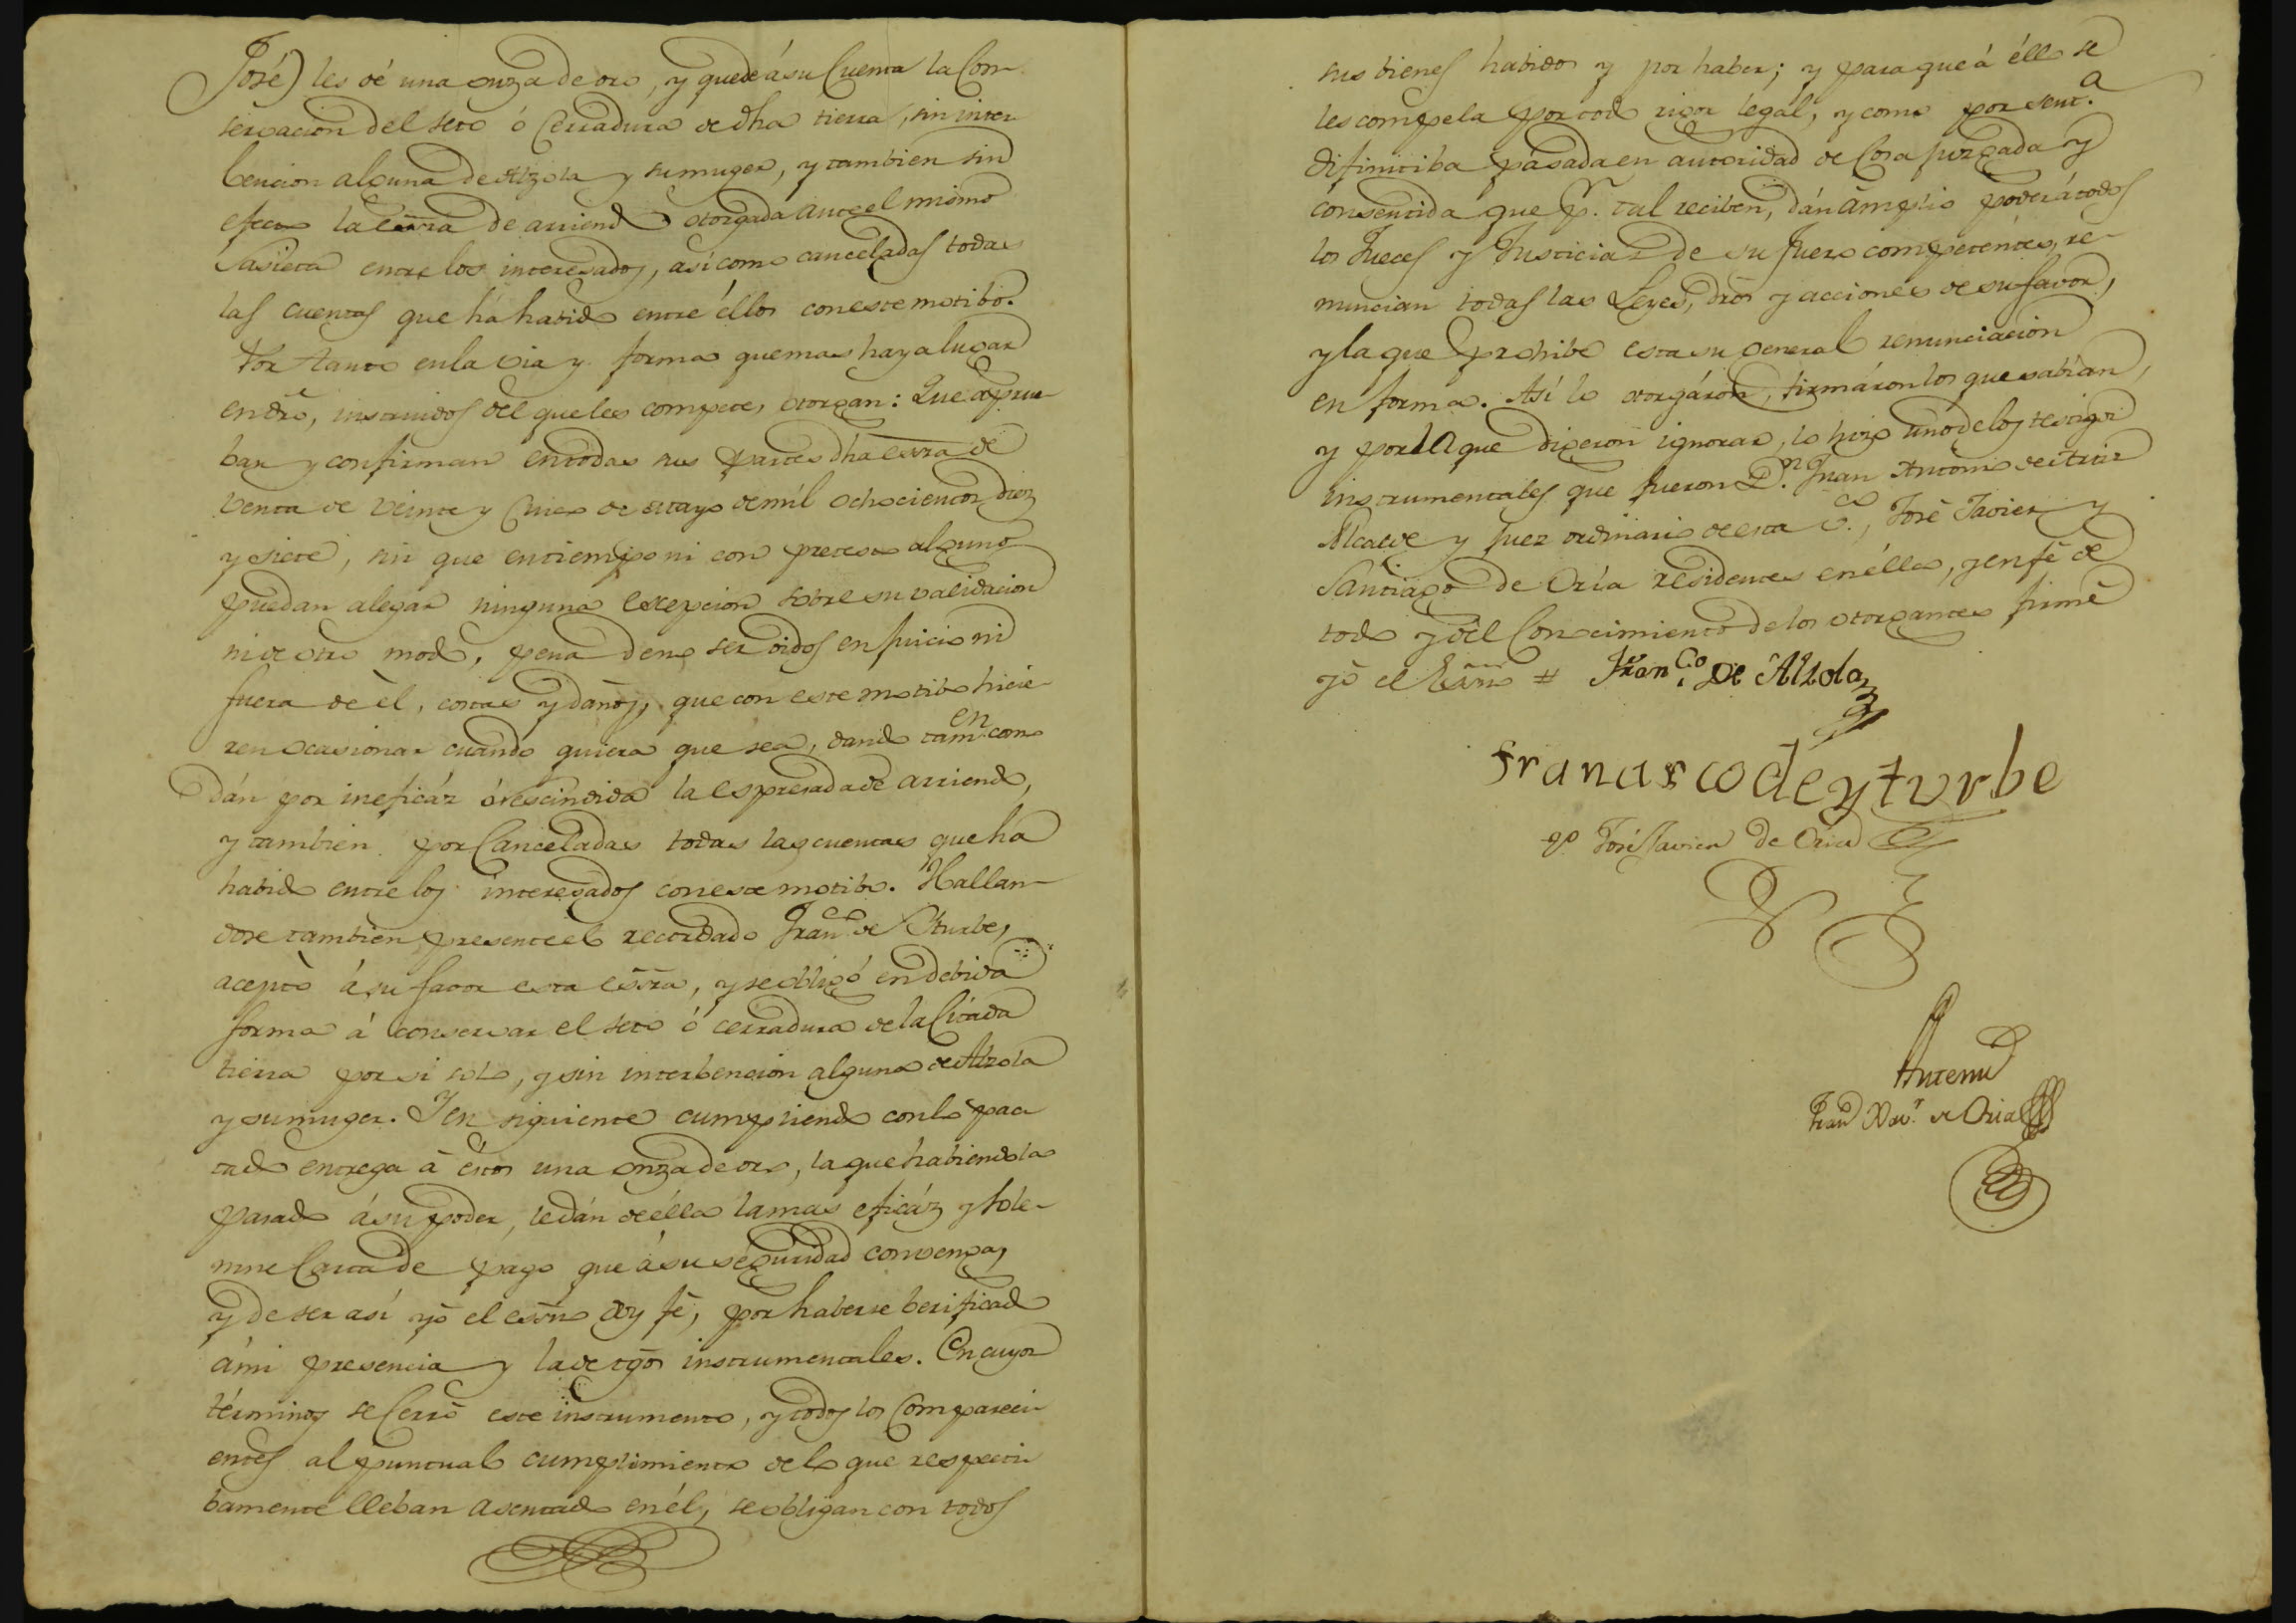 José) les dé una onza de oro, y quede á su Cuenta la Con-
servacion del seto ó Cerradura de dha tierra, sin inter-
bencion alguna de Alzola y su muger, y tambien sin
efecto la essra de arriendo otorgada ante el mismo
Sasieta entre los interesados, así como canceladas todas
las cuentas que há habido entre éllos con este motibo.
Por tanto en la via y forma que mas haya lugar
en dro, instruidos del que les compete, otorgan: Que aprue-
ban y confirman en todas sus partes dha essra de
venta de veinte y Cinco de Mayo de mil ochocientos diez
y siete, sin que en tiempo ni con pretesto alguno
puedan alegar ninguna excepcion sobre su validacion
ni de otro modo, pena de no ser oidos en juicio ni
fuera de él, costas y daños, que con este motibo hicie-
ren ocasionar cuando quiera que sea, dando tamen. como
dán por ineficáz ó rescindida la espresada de arriendo,
y tambien por Canceladas todas las cuentas que há
habido entre los interesados con este motibo. Hallan-
dose tambien presente el recordado Franco. de Yturbe,
aceptó á su favor esta essra, y se obligó en debida
forma á conservar el seto ó cerradura de la Citada
tierra por si solo, y sin interbencion alguna de Alzola
y su muger. Y en siguiente cumpliendo con lo pac-
tado entrega á éstos una onza de oro, la que habiendola
pasado á su poder, le dán de élla la mas eficáz y sole-
mne Carta de pago que á su seguridad convenga,
y de ser así yó el essno doy fé, por haberse berificado
á mi presencia y la de tgos instrumentales. En cuyos
términos se Cerró este instrumento, y todos los Compareci-
entes al puntual cumplimiento de lo que respecti-
bamente lleban asentado en él, se obligan con todos
sus bienes habidos y por haber; y para que á éllo se
les compela por todo rigor legál, y como por senta.
difinitiba pasada en autoridad de Cosa juzgada y
consentida que pr. tal reciben, dán ámplio poder á todos
los Jueces y Justicias de su fuero competentes, re-
nuncian todas las Leyes, dros y acciones de su favor,
y la que prohibe esta su general renunciacion
en forma. Así lo otorgáron, firmáron los que sabían,
y por la que dijeron ignorar, lo hizo uno de los testigos
instrumentales que fueron Dn. Juan Antonio de
Alcalde y juez ordinario de esta Va., José Javier y
Santiago de Oria residentes en élla, y en fé de
todo y del Conocimiento de los otorgantes firmé
yó el Essno # Franco. De Alzola
Francisco de yturbe
tgo José Javier de Oria
Antemi
Franco Xavr. de Oria